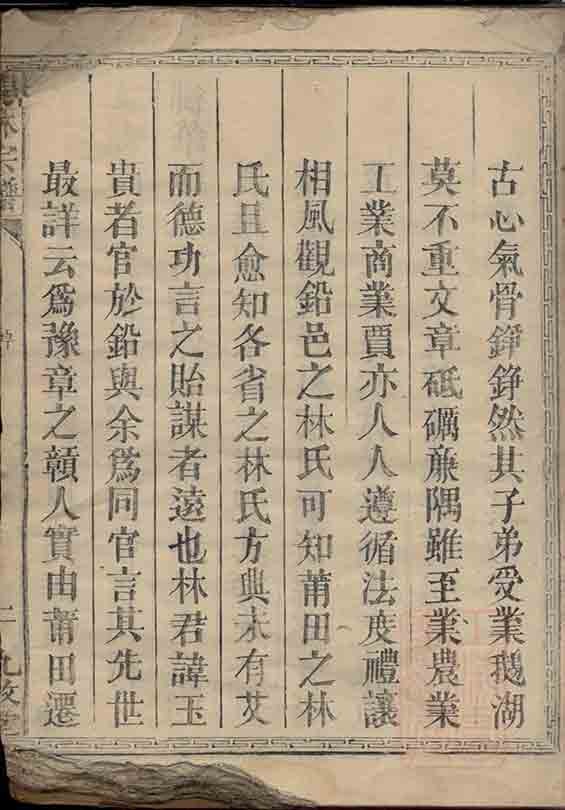 古心氣骨錚錚然其子弟受業鵝湖
莫不重文章砥礪廉隅雖至業農業
工業商業賈亦人人遵循法度禮讓
相風觀鉛邑之林氏可知莆田之林
氏且愈知各省之林氏方興未有艾
而德功言之貽謀者遠也林君諱玉
貴者官於鉛與余爲同官言其先世
最詳云爲豫章之贛人實由莆田遷
林氏譜
二